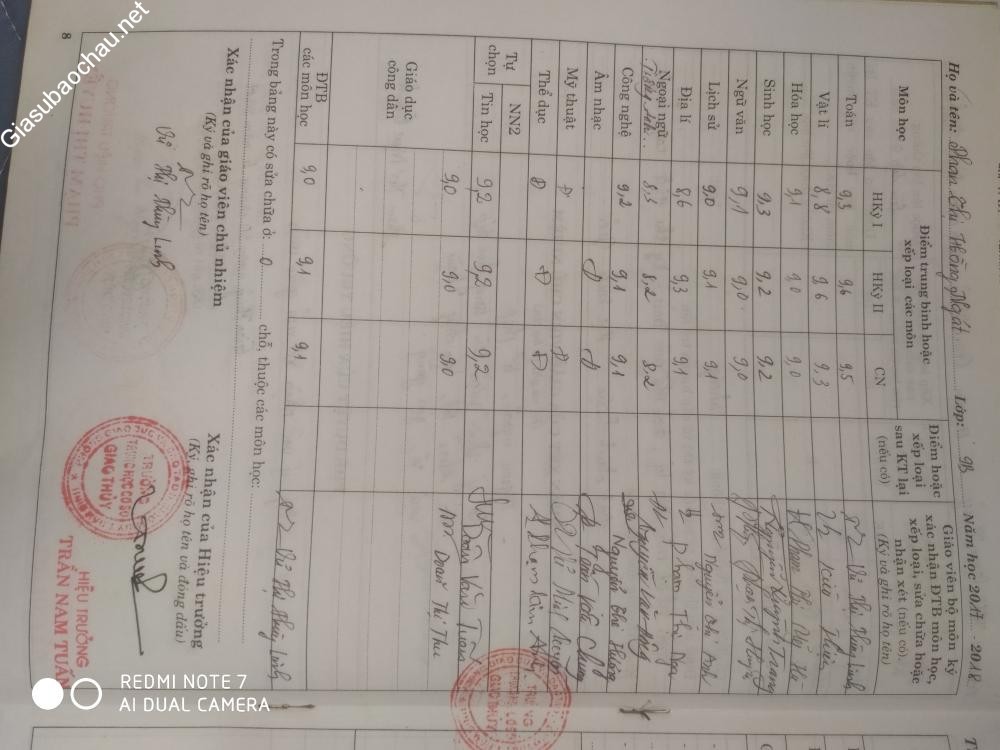 Giasubaochau.net
Họ và tên: Phan Thị Hồng Ngát Lớp: 9B Năm học 2017 - 2018
Môn học
Điểm trung bình hoặc xếp loại các môn
HKỳ I HKỳ II CN
Điểm hoặc xếp loại sau KT lại (nếu có)
Giáo viên bộ môn ký xác nhận ĐTB môn học, xếp loại, sửa chữa hoặc nhận xét (nếu có).
(Ký và ghi rõ họ tên)
Toán 9,3 9,6 9,5 Vũ Thị Thùy Linh
Vật lí 8,8 9,6 9,3
Hóa học 9,1 9,0 9,0
Sinh học 9,3 9,2 9,2 Nguyễn Quỳnh Trang
Ngữ văn 9,1 9,0 9,0
Lịch sử 9,0 9,1 9,1 Nguyễn Chí Anh
Địa lí 8,6 9,3 9,1 Phạm Thị Nga
Ngoại ngữ Tiếng Anh 8,3 8,2 8,2 Nguyễn Văn
Công nghệ 9,2 9,1 9,1 Nguyễn Thị
Âm nhạc Đ Đ
Mỹ thuật Đ Đ
Thể dục Đ Đ Đ
Tự chọn
NN2
Tin học 9,2 9,2 9,2 Đoàn Văn Tuấn
9,0 9,0 9,0 Doãn Thị Thu
Giáo dục công dân
ĐTB các môn học 9,0 9,1 9,1 Vũ Thị Thùy Linh
Trong bảng này có sửa chữa ở: 0 chỗ, thuộc các môn học:
Xác nhận của giáo viên chủ nhiệm
(Ký và ghi rõ họ tên)
Vũ Thị Thùy Linh
Xác nhận của Hiệu trưởng
(Ký, ghi rõ họ tên và đóng dấu)
TRƯỜNG
TRUNG HỌC CƠ SỞ
GIAO THỦY
HIỆU TRƯỞNG
TRẦN NAM TUẤN
8
REDMI NOTE 7
AI DUAL CAMERA